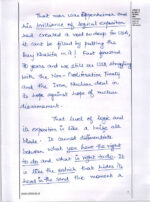 That man was Oppenheimer and
his brilliance of logical exposition
had created a
it can't be fixed by putting the
Fast forward
70 years and we still see USA struggling
with the Non-Proliferation Treaty
and the Iran Nuclear deal in
its hope against hope of nuclear
disarmament.
That level of logic and
its exposition is like a knife all
blade. It cannot differentiate
between what you have the right
to do and what is right to do. It
is like the ostrich that hides its
head in the sand the moment a